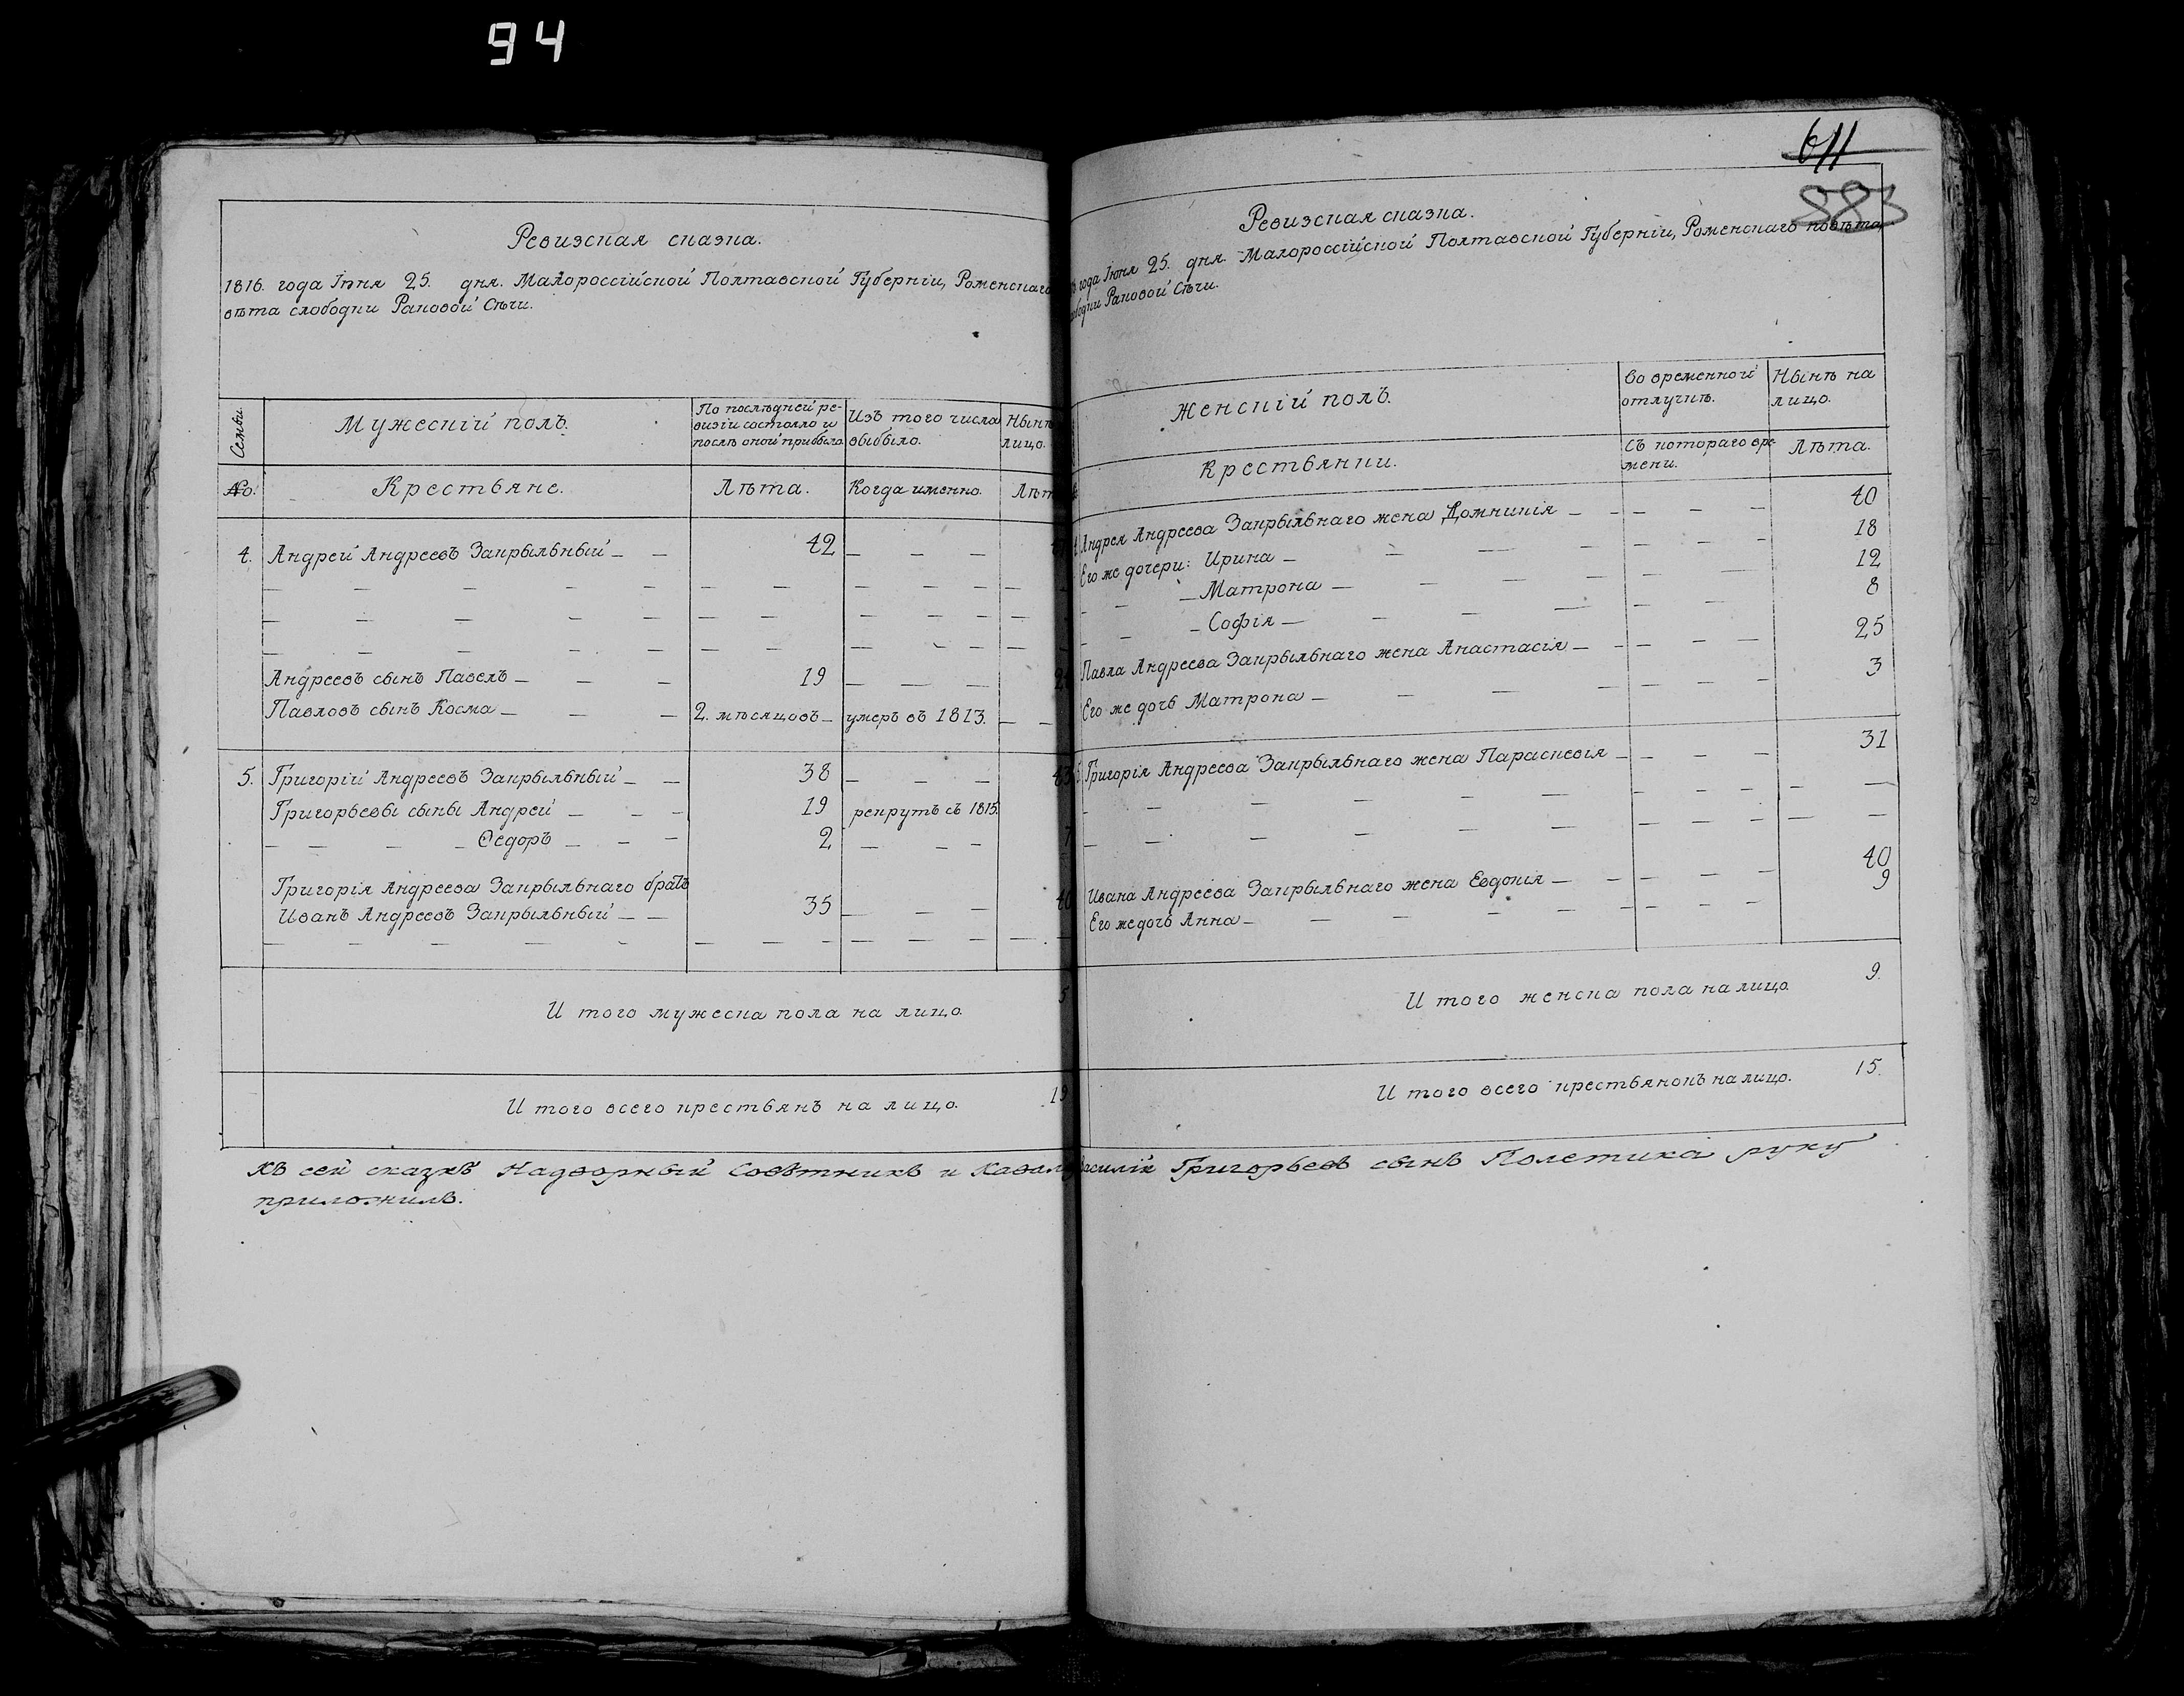 94
Ревизская сказка.
1816. года Іюня 25. дня. Малороссійской Полтавской Губерніи, Роменскаго
вѣта слободки Раковой Сѣчи.
Семьи.
Мужескій полъ.
По послѣдней ре-
визіи состояло и
послѣ оной прибыло
Изъ того числа
выбыло.
Нынѣ
лицо.
No.
Крестьяне.
Лѣта.
Когда именно.
Лѣт
4. Андрей Андреевъ Закрыльный — — 42 — — —
— — — — — — — — — — —
— — — — — — — — — — —
— — — — — — — — — — —
Андреевъ сынъ Павелъ — — — 19 — — —
Павловъ сынъ Косма — — — 2. мѣсяцовъ — умеръ въ 1813. — —
5. Григорій Андреевъ Закрыльный — — 38 — — — 43
Григорьевы сыны Андрей — — — 19 рекрутъ съ 1815.
— — — — Ѳедоръ — — — 2 — — — 7
Григорія Андреева Закрыльнаго братъ
Иванъ Андреевъ Закрыльный — — 35 — — — 40
— — — — — — — — — — — — —
И того мужеска пола на лицо. 5
И того всего крестьянъ на лицо. 19
611
883
Ревизская сказка.
года Іюня 25. дня. Малороссійской Полтавской Губерніи, Роменскаго повѣта,
Раковой Сѣчи.
Женскій полъ.
Во временной
отлучкѣ.
Нынѣ на
лицо.
Крестьянки.
Съ котораго вре-
мени.
Лѣта.
Андрея Андреева Закрыльнаго жена Домникія — — — — 40
Его же дочери: Ирина — — — — — — — 18
— — — Матрона — — — — — — 12
— — — Софія — — — — — — 8
Павла Андреева Закрыльнаго жена Анастасія — — — — — 25
Его же дочь Матрона — — — — — — — 3
Григорія Андреева Закрыльнаго жена Параскевія — — — — 31
— — — — — — — — — — — —
— — — — — — — — — — — —
Ивана Андреева Закрыльнаго жена Евдокія — — — — — 40
Его же дочь Анна — — — — — — — — 9
И того женска пола на лицо. 9.
И того всего крестьянокъ на лицо. 15.
Къ сей сказкѣ Надворный Совѣтникъ и Василій Григорьевъ сынъ Полетика руку
приложилъ.